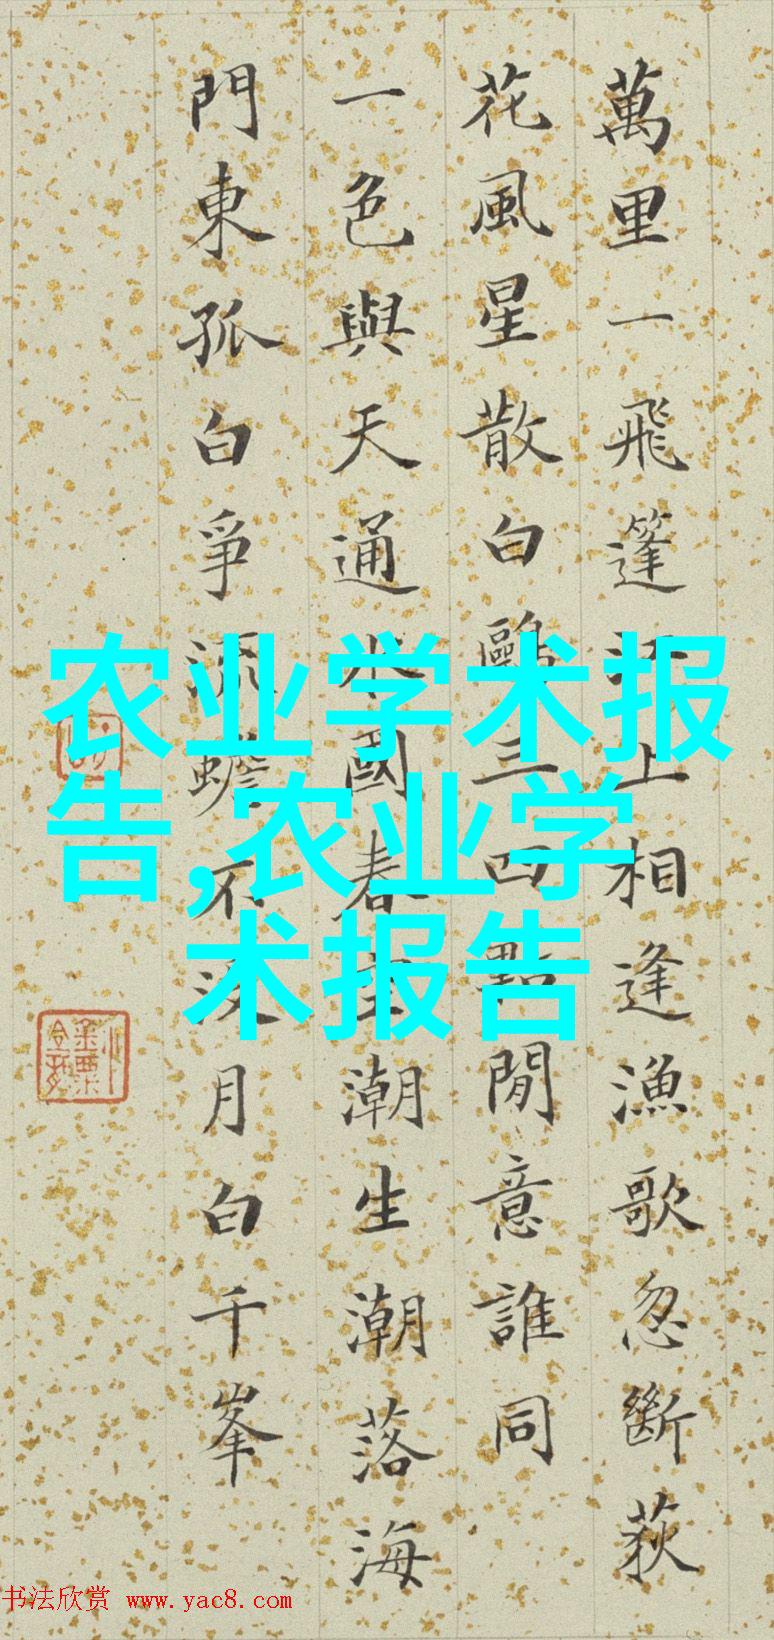 萬里一飛篷江上相逢漁歌忽斷荻
花風星散白鷗三四點閒意誰同
一色與天通水國春空潮生潮落海
門東孤白爭流蟾不沒月白千峯
农业学术报
告,农业学
术报告
书法欣赏 www.yac8.com